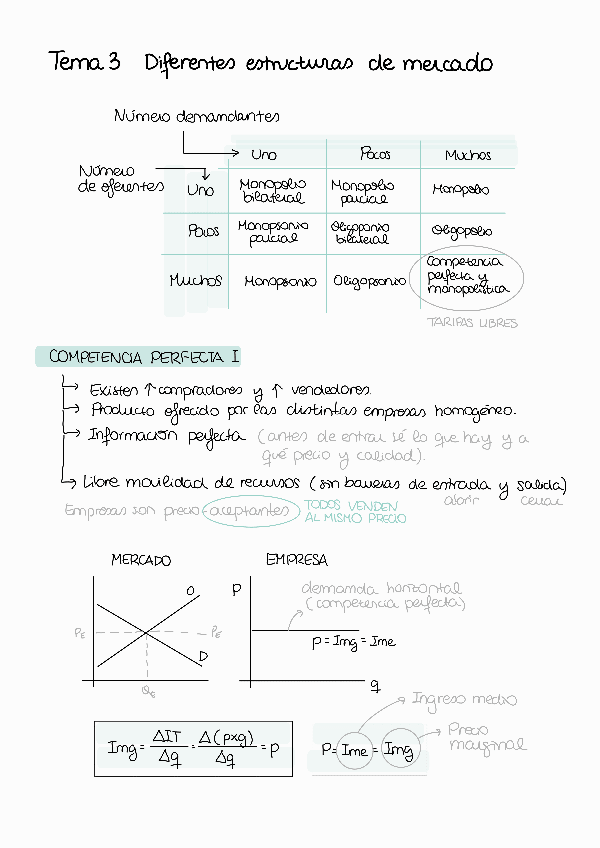 Tema 3 Diferentes estructuras de mercado
Número demandantes
Uno Pocos Muchos
Número
de oferentes
Uno Monopolio bilateral Monopolio parcial Monopolio
Pocos Monopsonio parcial Oligoponio bilateral Oligopolio
Muchos Monopsonio Oligopsonio Competencia perfecta y monopolística
TARIFAS LIBRES
COMPETENCIA PERFECTA I
Existen ↑ compradores y ↑ vendedores.
Producto ofrecido por las distintas empresas homogéneo.
Información perfecta (antes de entrar sé lo que hay y a
qué precio y calidad).
Libre movilidad de recursos (sin barreras de entrada y salida)
abrir cerrar
Empresas son precio-aceptantes TODOS VENDEN
AL MISMO PRECIO
MERCADO EMPRESA
O
P
demanda horizontal
(competencia perfecta)
PE PE
P = Img = Ime
D
QE
q
Ingreso medio
Img = ΔIT/Δq = Δ(pxq)/Δq = P
P = Ime = Img
Precio
marginal